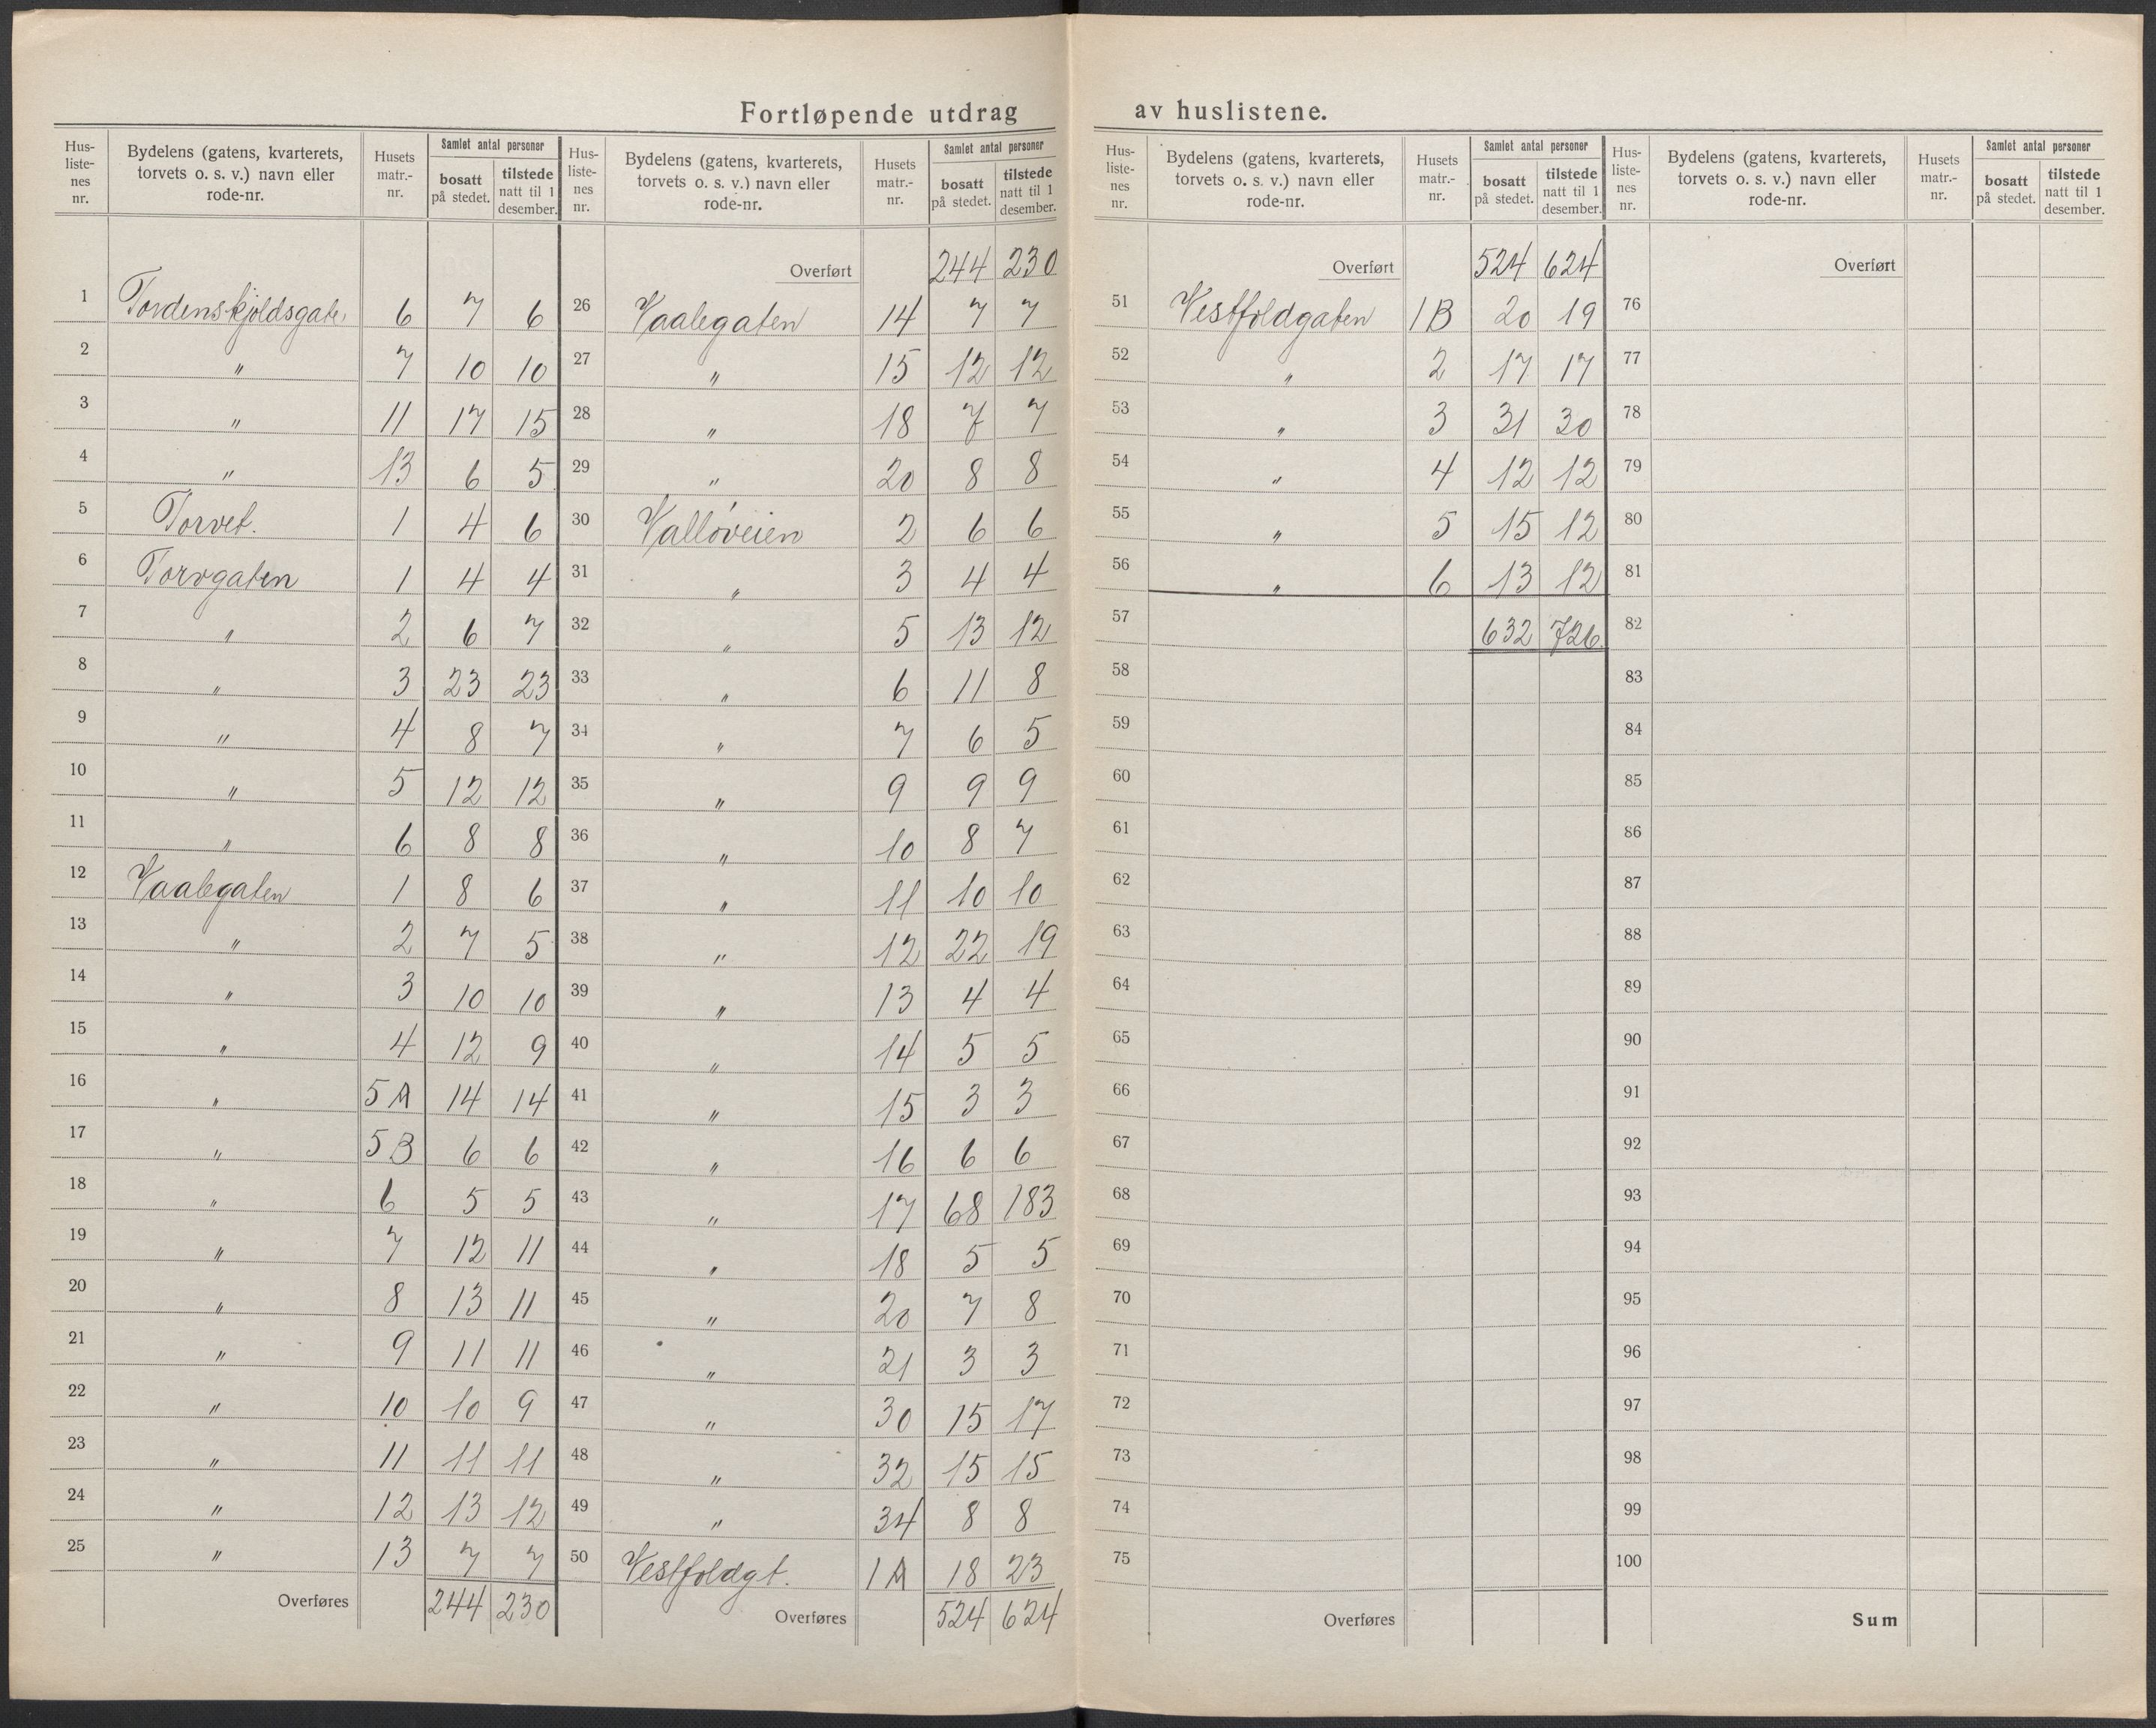 Fortløpende utdrag av huslistene.
Hus-liste-nes nr. | Bydelens (gatens, kvarterets, torvets o. s. v.) navn eller rode-nr. | Husets matr.-nr. | Samlet antal personer bosatt på stedet. | tilstede natt til 1 desember.
1 Tordenskjoldsgate. 6 7 6
2 " 7 10 10
3 " 11 17 15
4 " 13 6 5
5 Torvet. 1 4 6
6 Torvgaten 1 4 4
7 " 2 6 7
8 " 3 23 23
9 " 4 8 7
10 " 5 12 12
11 " 6 8 8
12 Vaalegaten 1 8 6
13 " 2 7 5
14 " 3 10 10
15 " 4 12 9
16 " 5A 14 14
17 " 5B 6 6
18 " 6 5 5
19 " 7 12 11
20 " 8 13 11
21 " 9 11 11
22 " 10 10 9
23 " 11 11 11
24 " 12 13 12
25 " 13 7 7
Overføres 244 230
Hus-liste-nes nr. | Bydelens (gatens, kvarterets, torvets o. s. v.) navn eller rode-nr. | Husets matr.-nr. | Samlet antal personer bosatt på stedet. | tilstede natt til 1 desember.
Overført 244 230
26 Vaalegaten 14 7 7
27 " 15 12 12
28 " 18 7 7
29 " 20 8 8
30 Valløveien 2 6 6
31 " 3 4 4
32 " 5 13 12
33 " 6 11 8
34 " 7 6 5
35 " 9 9 9
36 " 10 8 7
37 " 11 10 10
38 " 12 22 19
39 " 13 4 4
40 " 14 5 5
41 " 15 3 3
42 " 16 6 6
43 " 17 68 183
44 " 18 5 5
45 " 20 7 8
46 " 21 3 3
47 " 30 15 17
48 " 32 15 15
49 " 34 8 8
50 Vestfoldgt. 1A 18 23
Overføres 524 624
Hus-liste-nes nr. | Bydelens (gatens, kvarterets, torvets o. s. v.) navn eller rode-nr. | Husets matr.-nr. | Samlet antal personer bosatt på stedet. | tilstede natt til 1 desember.
Overført 524 624
51 Vestfoldgaten 1B 20 19
52 " 2 17 17
53 " 3 31 30
54 " 4 12 12
55 " 5 15 12
56 " 6 13 12
57 632 726
58
59
60
61
62
63
64
65
66
67
68
69
70
71
72
73
74
75
Overføres
Hus-liste-nes nr. | Bydelens (gatens, kvarterets, torvets o. s. v.) navn eller rode-nr. | Husets matr.-nr. | Samlet antal personer bosatt på stedet. | tilstede natt til 1 desember.
Overført
76
77
78
79
80
81
82
83
84
85
86
87
88
89
90
91
92
93
94
95
96
97
98
99
100
Sum